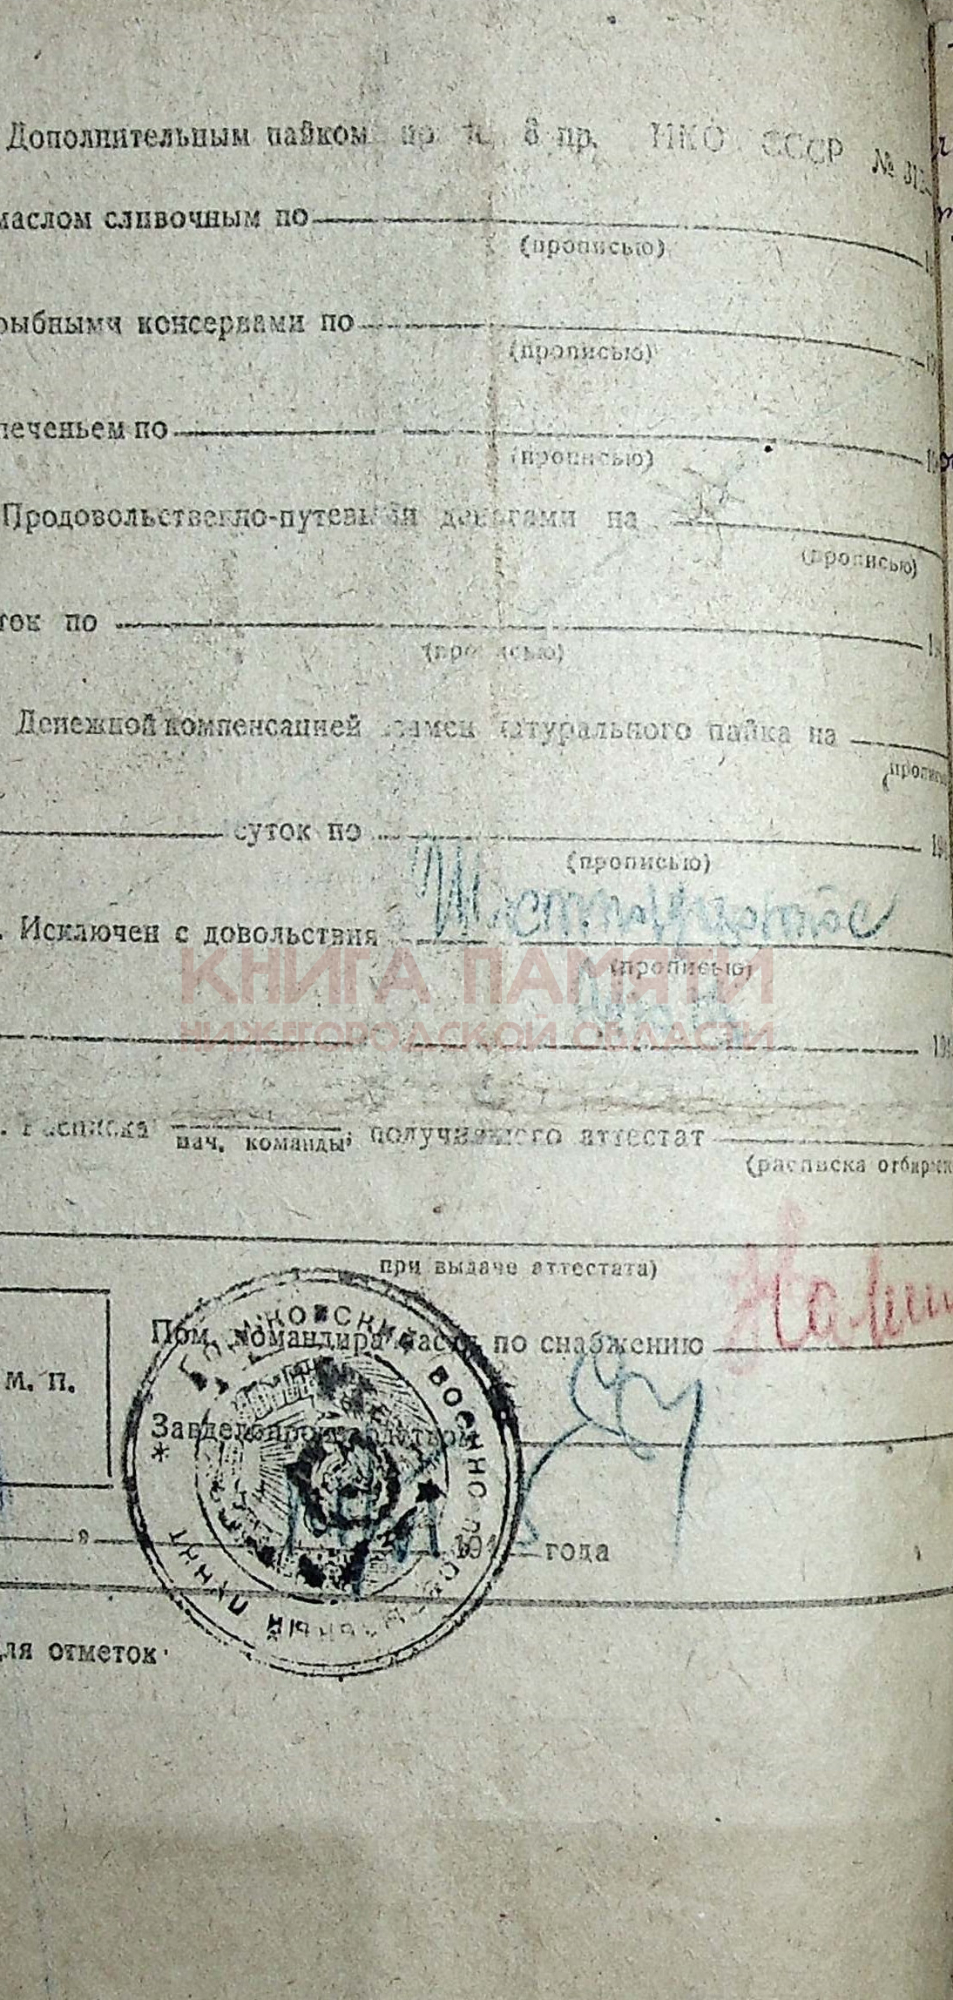 Дополнительным пайком по п. 8 пр. НКО СССР №
маслом сливочным по
(прописью)
рыбными консервами по
(прописью)
печеньем по
(прописью)
Продовольственно-путевыми деньгами на
(прописью)
ток по
(прописью)
Денежной компенсацией взамен натурального пайка на
суток по
(прописью)
Исключен с довольствия Шестнадцатое
(прописью)
КНИГА ПАМЯТИ
НИЖЕГОРОДСКОЙ ОБЛАСТИ
Расписка нач. команды, получившего аттестат
(расписка отбирает
при выдаче аттестата)
Пом. командира части по снабжению
М. П.
Завделопроизводством
194 года
для отметок
ВОЕННО-ПЕРЕСЫЛЬНЫЙ ПУНКТ